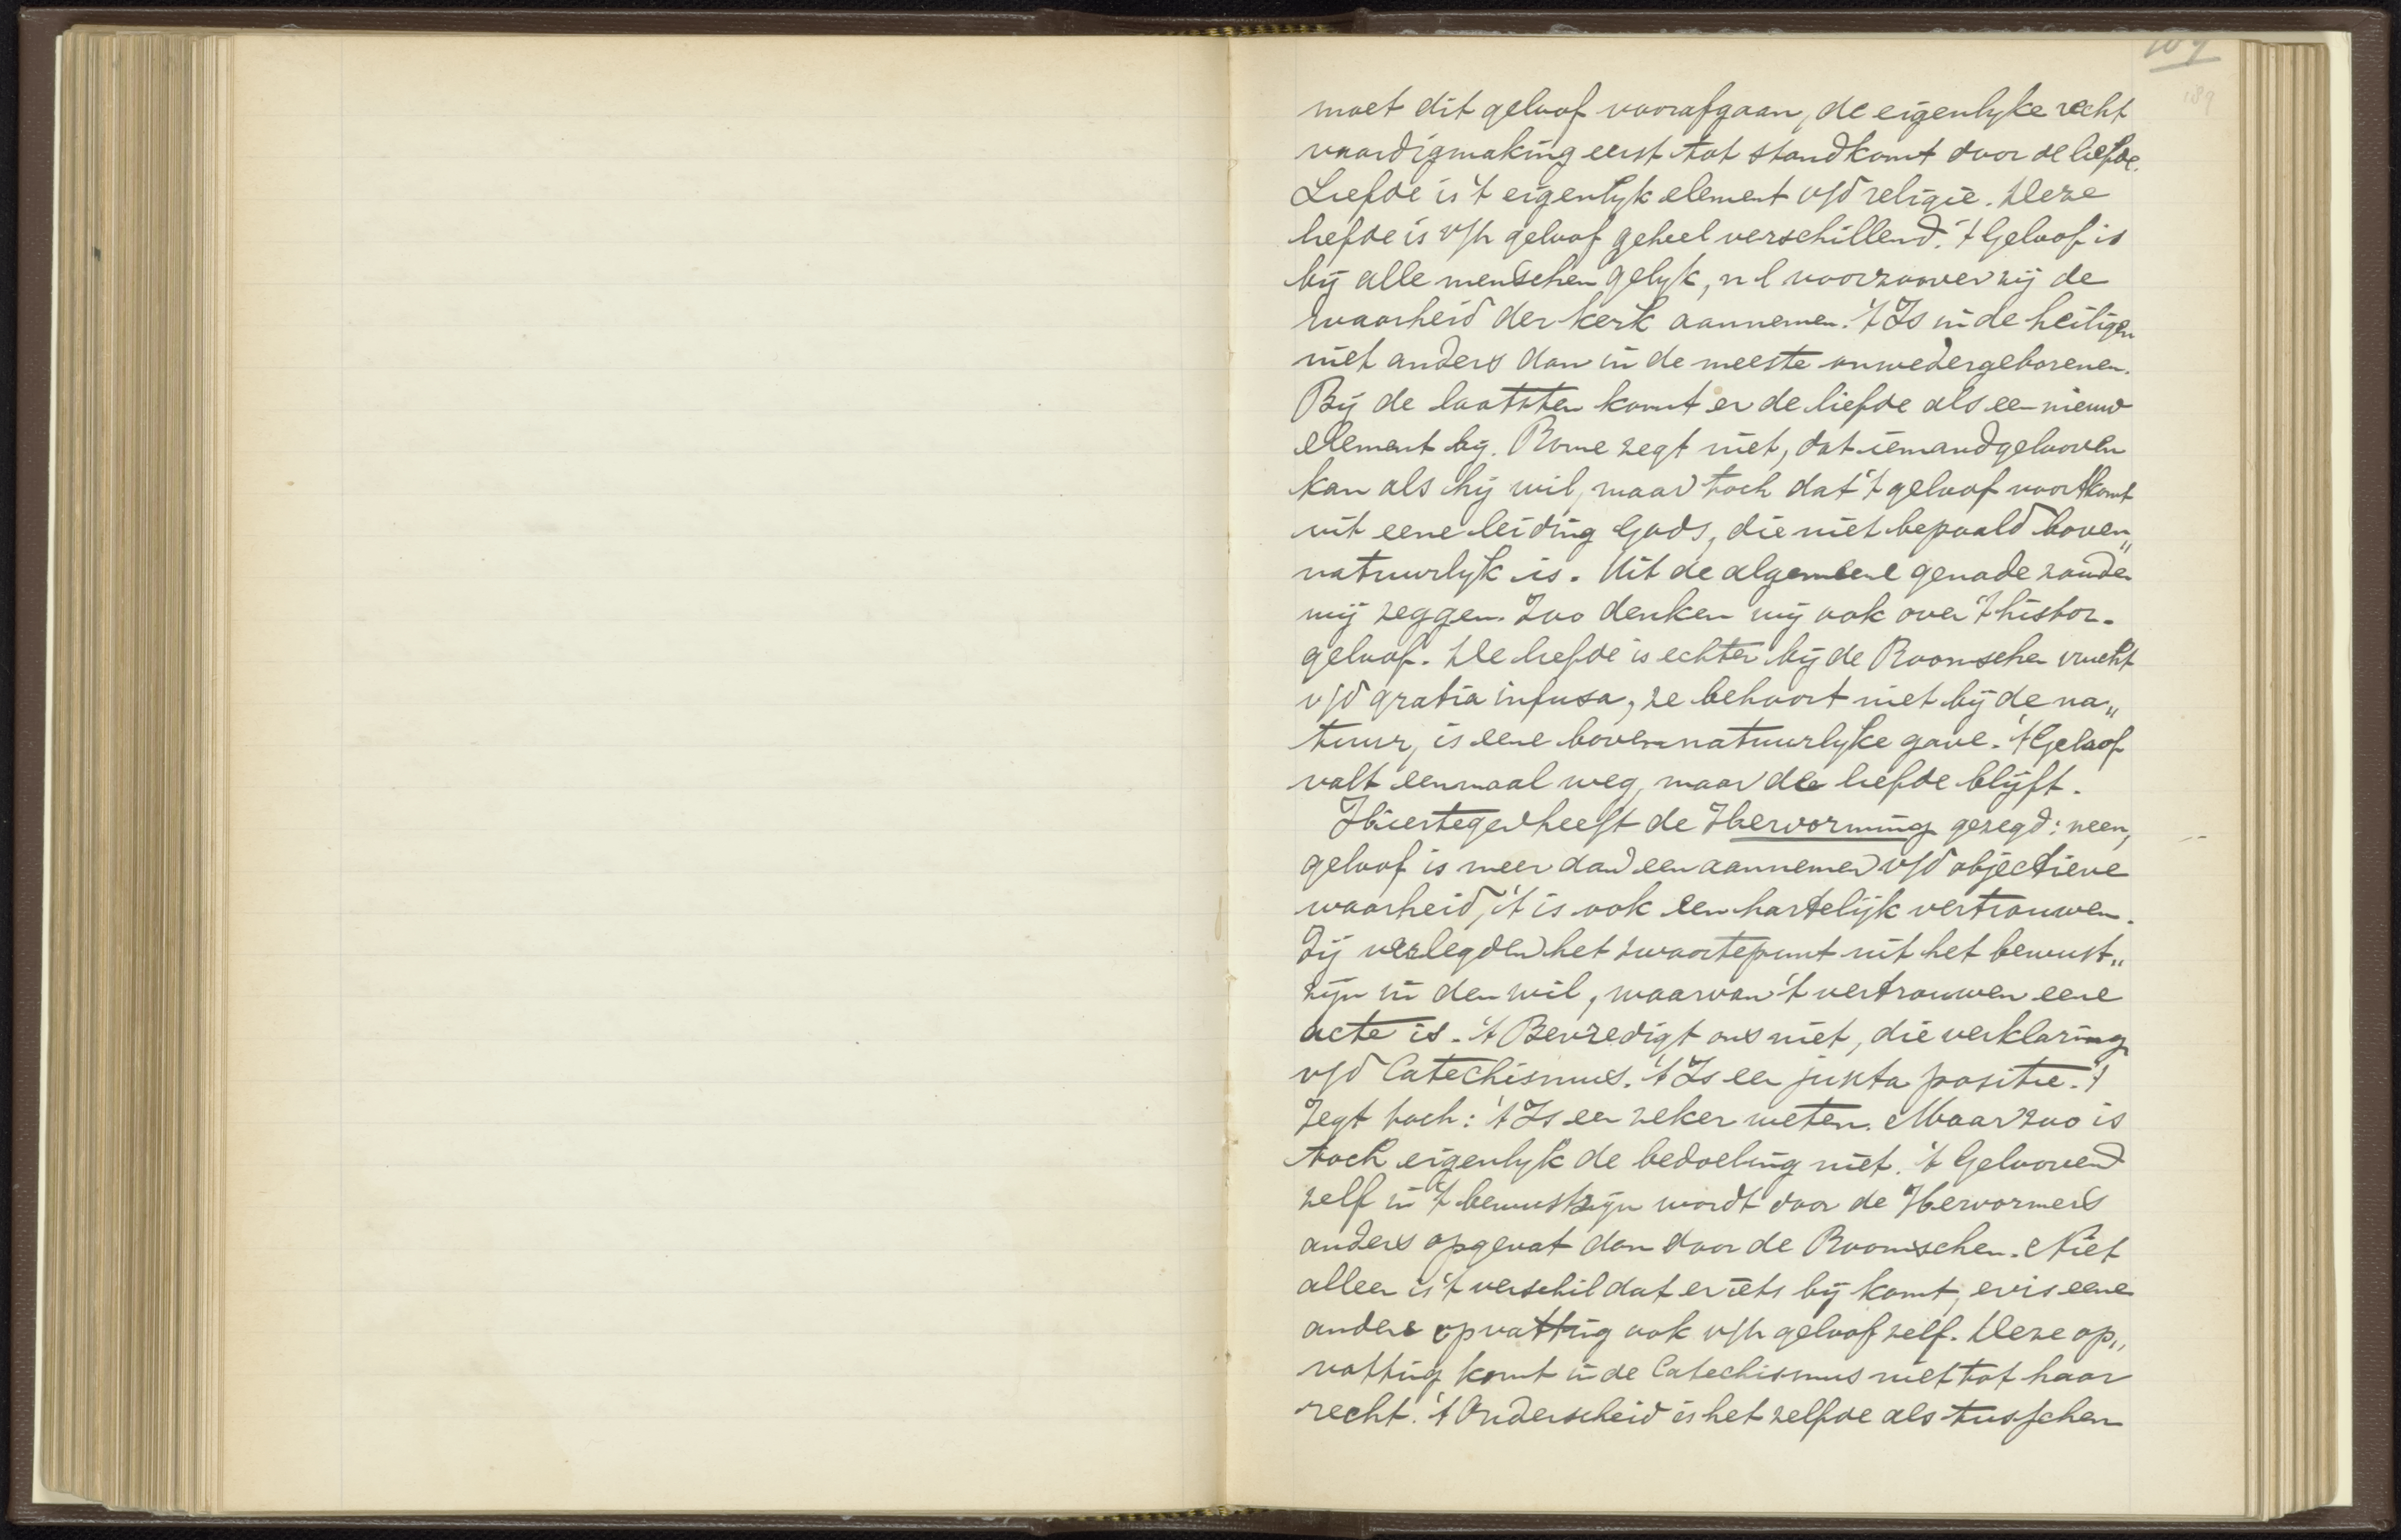 189
moet dit geloof voorafgaan, de eigenlyke recht
vaardigmaking eerst tot stand komt door de liefde.
Liefde is 't eigenlyk element v/d religie. Deze
liefde is v/h geloof geheel verschillend. 't Geloof is
bij alle menschen gelyk, n l voorzoover zij de
waarheid der kerk aannemen. 't Is in de heiligen
niet anders dan in de meeste onwedergeborenen.
Bij de laatsten komt er de liefde als een nieuw
element bij. Rome zegt niet, dat iemand gelooven
kan als hij wil, maar toch dat 't geloof voortkomt
uit eene leiding Gods, die niet bepaald boven„
natuurlyk is. Uit de algemeene genade zouden
wij zeggen. Zoo denken wij ook over 't histor.
geloof. De liefde is echter bij de Roomschen vrucht
v/d gratia infusa, ze behoort niet bij de na„
tuur, is eene bovennatuurlyke gave. 't Geloof
valt eenmaal weg, maar de liefde blijft.
Hiertegen heeft de Hervorming gezegd: neen,
geloof is meer dan een aannemen v/d objectieve
waarheid, 't is ook een hartelijk vertrouwen.
Zij verlegden het zwaartepunt uit het bewust„
zijn in den wil, waarvan 't vertrouwen eene
acte is. 't Bevredigt ons niet, die verklaring
v/d Catechismus. 't Is een juxta positie. 't
Zegt toch: 't Is een zeker weten. Maar zoo is
toch eigenlyk de bedoeling niet. 't Gelooven
zelf in 't bewustzijn wordt door de Hervormers
anders opgevat dan door de Roomschen. Niet
alleen is 't verschil dat er iets bij komt, er is eene
andere opvatting ook v/h geloof zelf. Deze op„
vatting komt in de Catechismus niet tot haar
recht. 't Onderscheid is het zelfde als tusschen